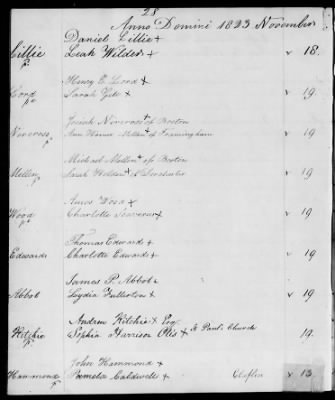 28
Anno Domini 1823 November
Daniel Lillie +
Lillie Leah Wilder + v 18.
p.
Henry E. Lord +
Lord Sarah Gile + v 19.
p.
Josiah Norcross + of Boston
Norcross Ann Homer Mellen + of Framingham v 19
p
Michael Mellen + of Boston
Mellen Sarah Holden + of Dorchester v 19
p
Amos Wood +
Wood Charlotte + v 19
p
Thomas Edwards +
Edwards Charlotte Edwards + v 19
James P. Abbot +
Abbot Lydia Fullerton + v 19
p
Andrew Ritchie + Esq
Ritchie Sophia Harrison Otis + St Paul's Church 19.
p
John Hammond +
Hammond Pamela Caldwell + Claflin v 13
p